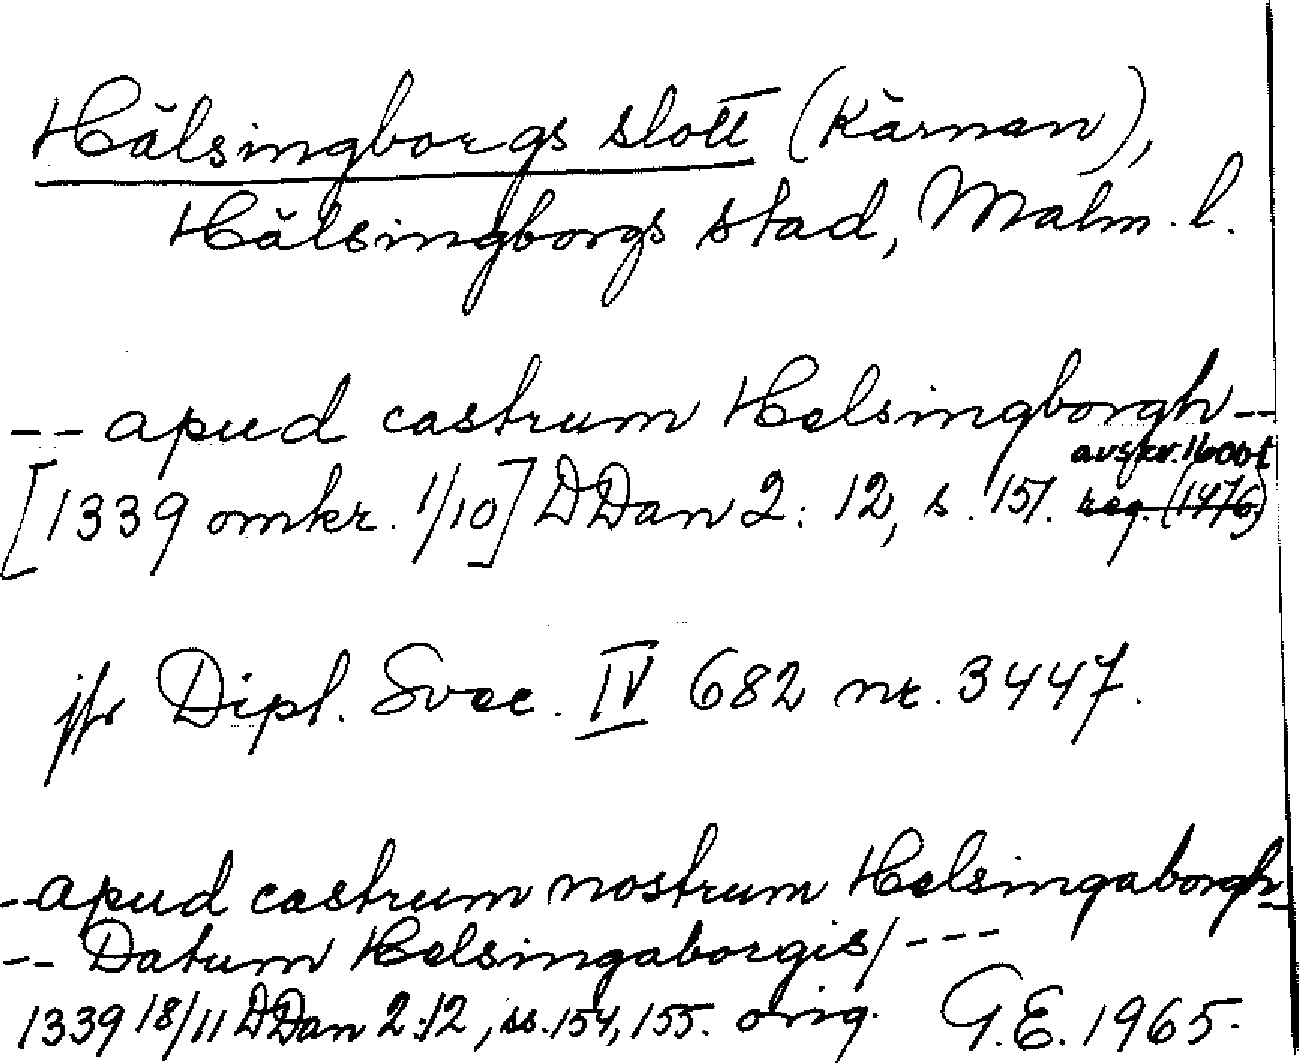 Hälsingborgs slott (Kärnan),
Hälsingborgs stad, Malm. l.
-- apud castrum Helsingborgh --
avskr. 1600t
[1339 omkr. 1/10] DDan 2: 12, s. 151. reg. (1476)
jfr Dipl. Svec. IV 682 nr. 3447.
- apud castrum nostrum Helsingaborgh
-- Datum Helsingaborgis/ ---
1339 18/11 DDan 2:12, ss. 154, 155. orig. G.E. 1965.